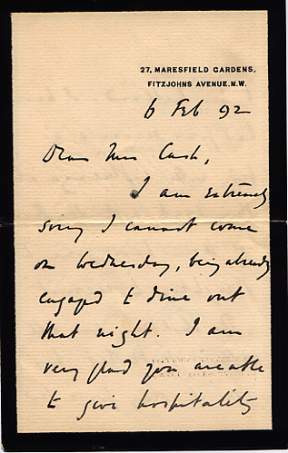 27, MARESFIELD GARDENS,
FITZJOHNS AVENUE. N.W.
6 Feb 92
Dear Mrs Cash,
I am extremely
sorry I cannot come
on Wednesday, being already
engaged to dine out
that night. I am
very glad you are able
to give hospitality